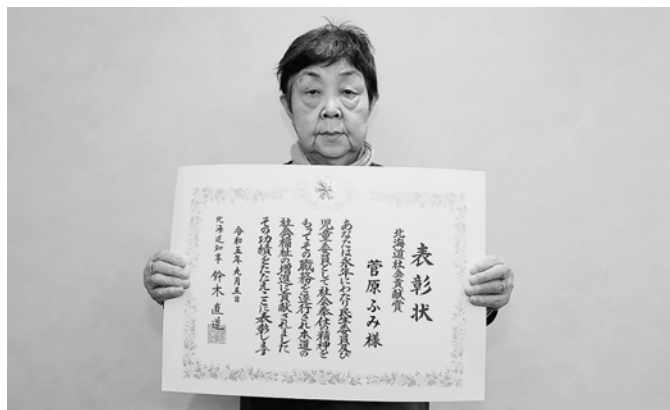 表彰状
北海道社会貢献賞
菅原ふみ様
あなたは永年にわたり民生委員及び
児童委員として社会奉仕の精神を
もってその職務を遂行され本道の
社会福祉の増進に貢献されました
その功績をたたえここに表彰します
令和五年九月五日
北海道知事 鈴木直道